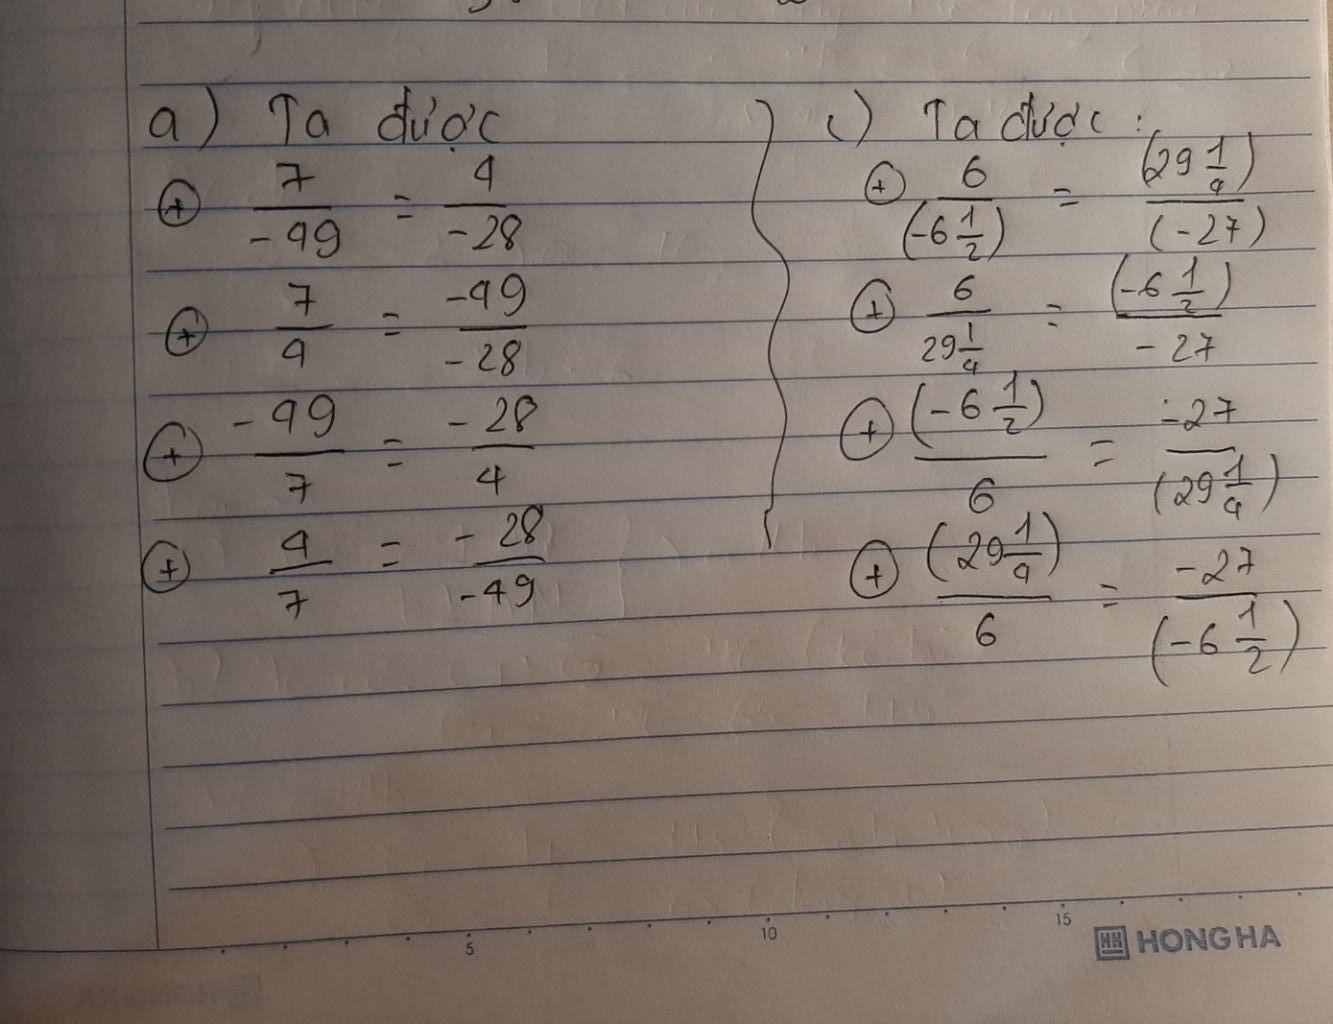 a) Ta được
⊕ 7/-49 = 4/-28
⊕ 7/4 = -49/-28
⊕ -49/7 = -28/4
⊕ 4/7 = -28/-49
c) Ta được:
⊕ 6/(-6 1/2) = (29 1/4)/(-27)
⊕ 6/29 1/4 = (-6 1/2)/-27
⊕ (-6 1/2)/6 = -27/(29 1/4)
⊕ (29 1/4)/6 = -27/(-6 1/2)
5 10 15
HONG HA